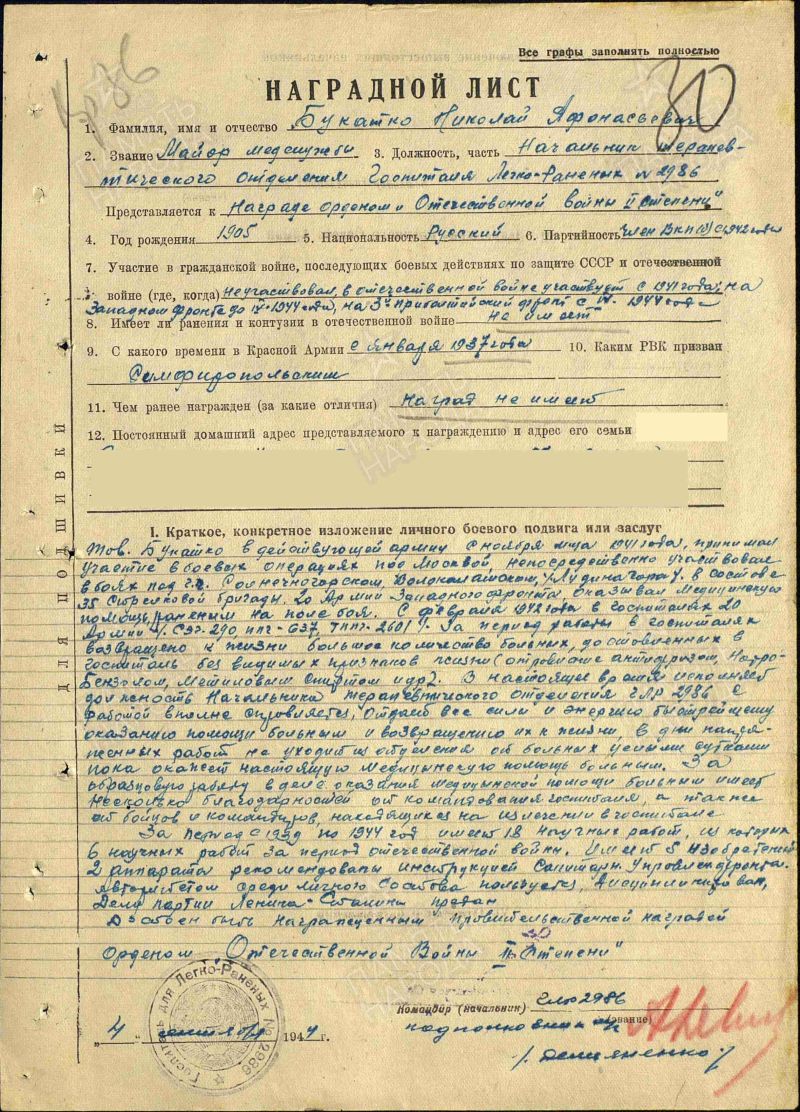 Все графы заполнять полностью
30
НАГРАДНОЙ ЛИСТ
1. Фамилия, имя и отчество Букатко Николай Афонасьевич
2. Звание Майор медслужбы 3. Должность, часть Начальник терапев-
тического отделения Госпиталя Легко-Раненых № 2986
Представляется к Награде орденом „Отечественной войны II степени"
4. Год рождения 1905 5. Национальность Русский 6. Партийность член ВКП(б) с 1942 года
7. Участие в гражданской войне, последующих боевых действиях по защите СССР и отечественной
войне (где, когда) не участвовал, в отечественной войне участвует с 1941 года, на
Западном фронте до IV-1944 года, на 3м прибалтийский фронт с IV. 1944 года
8. Имеет ли ранения и контузии в отечественной войне не имеет
9. С какого времени в Красной Армии с января 1937 года 10. Каким РВК призван
Симфиропольским
11. Чем ранее награжден (за какие отличия) наград не имеет
12. Постоянный домашний адрес представляемого к награждению и адрес его семьи
ДЛЯ ПОДШИВКИ
I. Краткое, конкретное изложение личного боевого подвига или заслуг
Тов. Букатко в действующей армии с ноября м-ца 1941 года, принимал
участие в боевых операциях под Москвой, непосредственно участвовал
в боях под г.г. Солнечногорском, Волоколамском, /Лудина гора/. В составе
35 стрелковой бригады, 20 Армии Западного фронта, оказывал медицинскую
помощь раненым на поле боя. С февраля 1942 года в госпиталях 20
Армии /. СЭГ-290, ППГ-637, ТППГ-2601 /. За период работы в госпиталях
возвращено к жизни большое количество больных, доставленных в
госпиталь без видимых признаков жизни (отравление антифризом, Нитро-
Бензолом, Метиловым спиртом и др). В настоящее время исполняет
должность Начальника терапевтического отделения ГЛР 2986 с
работой вполне справляется, отдает все силы и энергию быстрейшему
оказанию помощи больным и возвращению их к жизни, в дни напря-
женных работ не уходит из отделения от больных целыми сутками
пока окажет настоящую медицинскую помощь больным. За
образцовую работу в деле оказания медицинской помощи больным имеет
несколько благодарностей от командования госпиталя, а так же
от бойцов и командиров, находящихся на излечении в госпитале
За период с 1939 по 1944 год имеет 18 научных работ, из которых
6 научных работ за период отечественной войны. Имеет 5 изобретений
2 аппарата рекомендованы инструкцией Санитарн. Управлен. фронта.
Авторитетом среди личного состава пользуется, дисциплинирован,
Делу партии Ленина-Сталина предан
Достоен быть награжденным правительственной наградой
орденом „Отечественной Войны II Степени"
Командир (начальник) ГЛР 2986
(звание)
подполковник м/с
/. Демьяненко /
„4" сентября 1944 г.
Госпиталь для Легко-Раненых № 2986